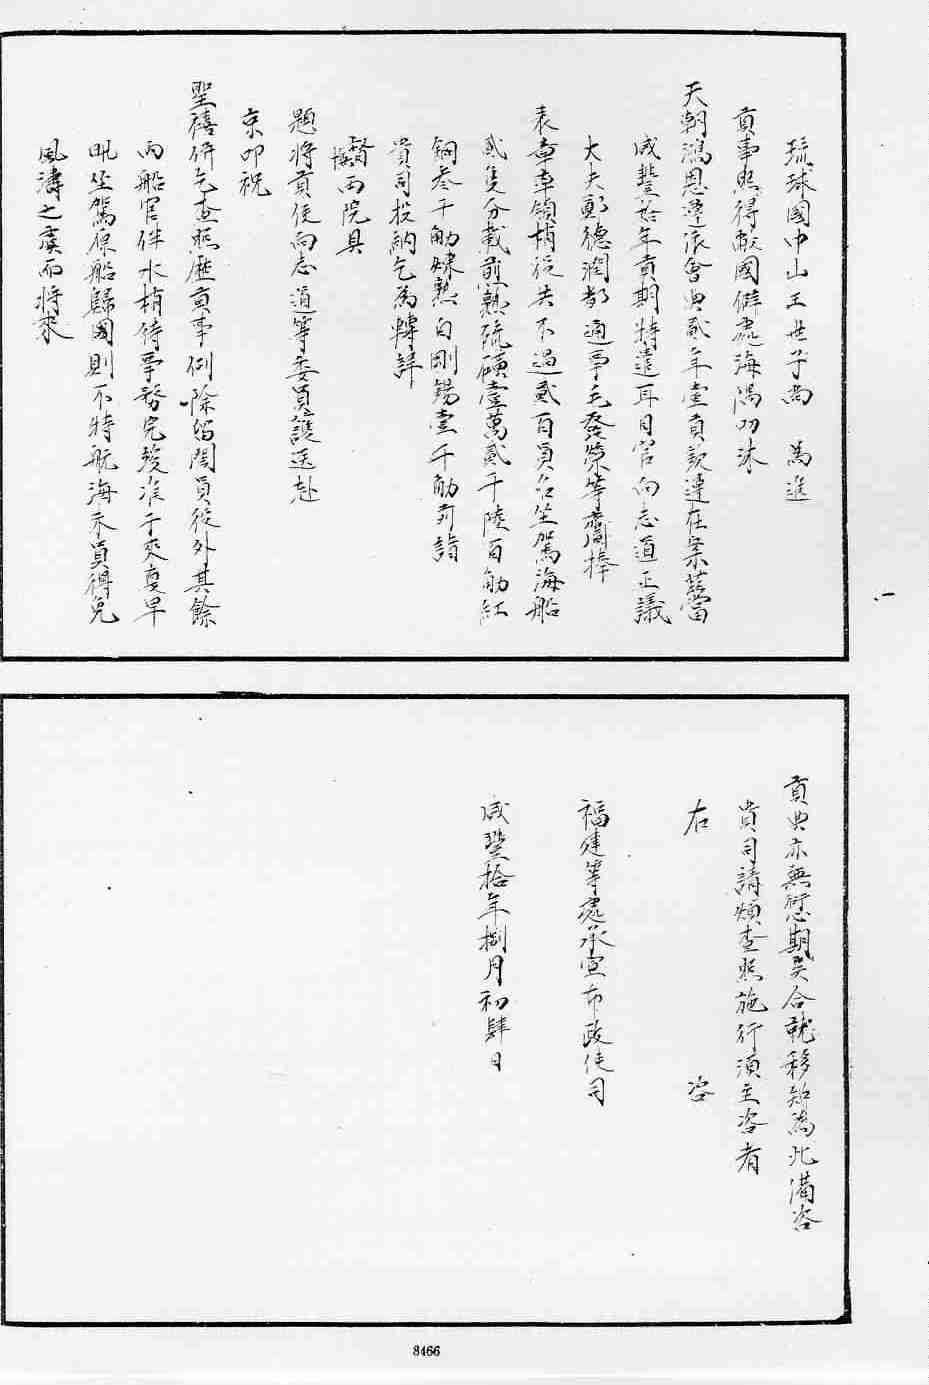 琉球國中山王世子尚　為進
貢事照得敝國僻處海隅叨沐
天朝鴻恩遵依會典貳年壹貢欽遵在案茲當
咸豐拾年貢期特遣耳目官向志道正議
大夫鄭德潤都通事毛發榮等齎捧
表章率領梢役共不過貳百員名坐駕海船
貳隻分載煎熟硫磺壹萬貳千陸百觔紅
銅叁千觔煉熟白剛錫壹千觔前詣
貴司投納乞為轉詳
督撫兩院具
題將貢使向志道等委員護送赴
京叩祝
聖禧併乞查照歷貢事例除留閩員役外其餘
兩船官伴水梢待事務完竣准于來夏早
汛坐駕原船歸國則不特航海末員得免
風濤之虞而將來
貢典亦無愆期矣合就移知為此備咨
貴司請煩查照施行須至咨者
右　咨
福建等處承宣布政使司
咸豐拾年捌月初肆日
8466